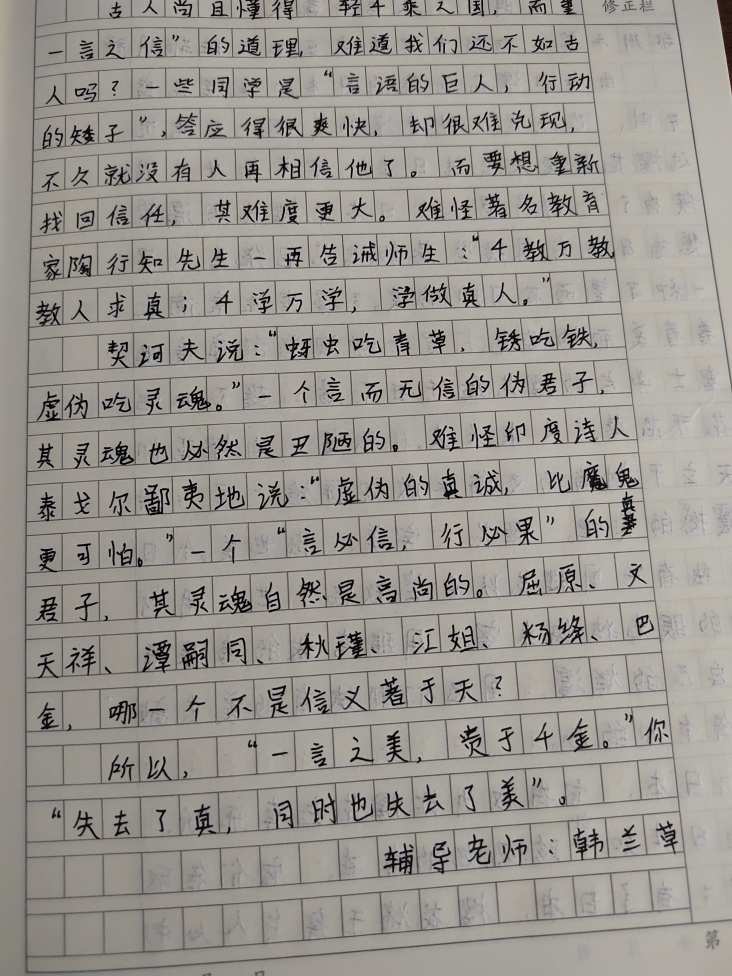 古人尚且懂得“轻千乘之国，而重 修正栏
一言之信”的道理，难道我们还不如古
人吗？一些同学是“言语的巨人，行动
的矮子”，答应得很爽快，却很难兑现，
不久就没有人再相信他了。而要想重新
找回信任，其难度更大。难怪著名教育
家陶行知先生一再告诫师生：“千教万教，
教人求真；千学万学，学做真人。”
契诃夫说：“蚜虫吃青草，锈吃铁，
虚伪吃灵魂。”一个言而无信的伪君子，
其灵魂也必然是丑陋的。难怪印度诗人
泰戈尔鄙夷地说：“虚伪的真诚，比魔鬼
更可怕。”一个“言必信，行必果”的真
君子，其灵魂自然是高尚的。屈原、文
天祥、谭嗣同、秋瑾、江姐、杨绛、巴
金，哪一个不是信义著于天？
所以，“一言之美，贵于千金。”你
“失去了真，同时也失去了美”。
辅导老师：韩兰草
第